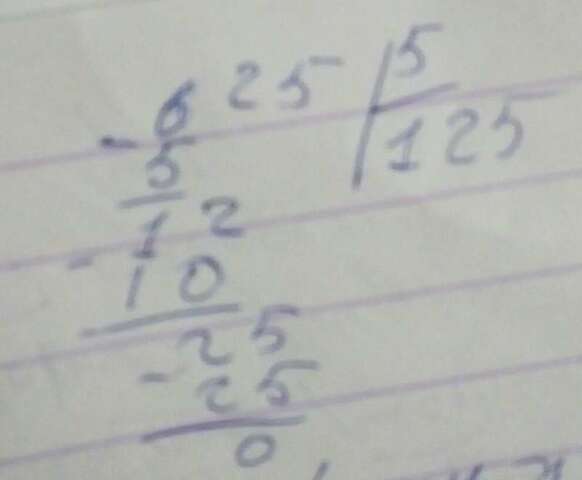 - 625 | 5
5 | 125
12
- 10
25
- 25
0